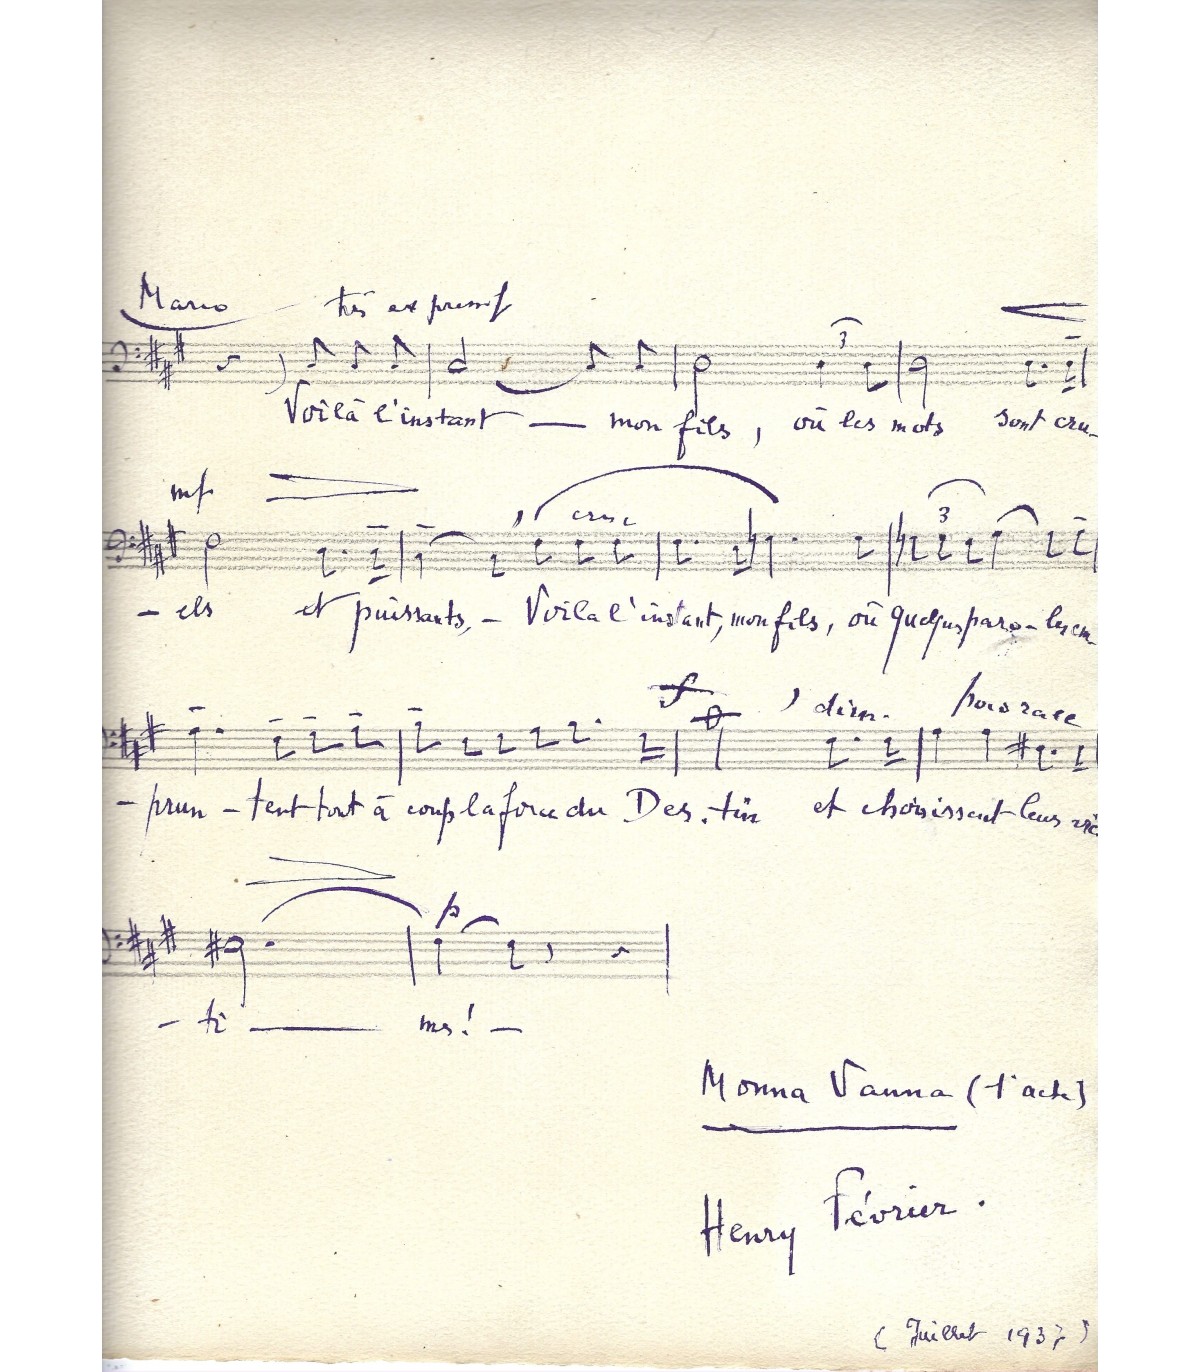 Marco très expressif
3
Voilà l'instant — mon fils, où les mots sont cru-
mf
cresc
3
- els et puissants, - Voilà l'instant, mon fils, où quelques paro-les em-
f , dim. poco rall
- prun - tent tout à coup la force du Des.tin et choisissent leurs vic
p
- ti — mes! -
Monna Vanna (1r acte)
Henry Février.
(Juillet 1937)